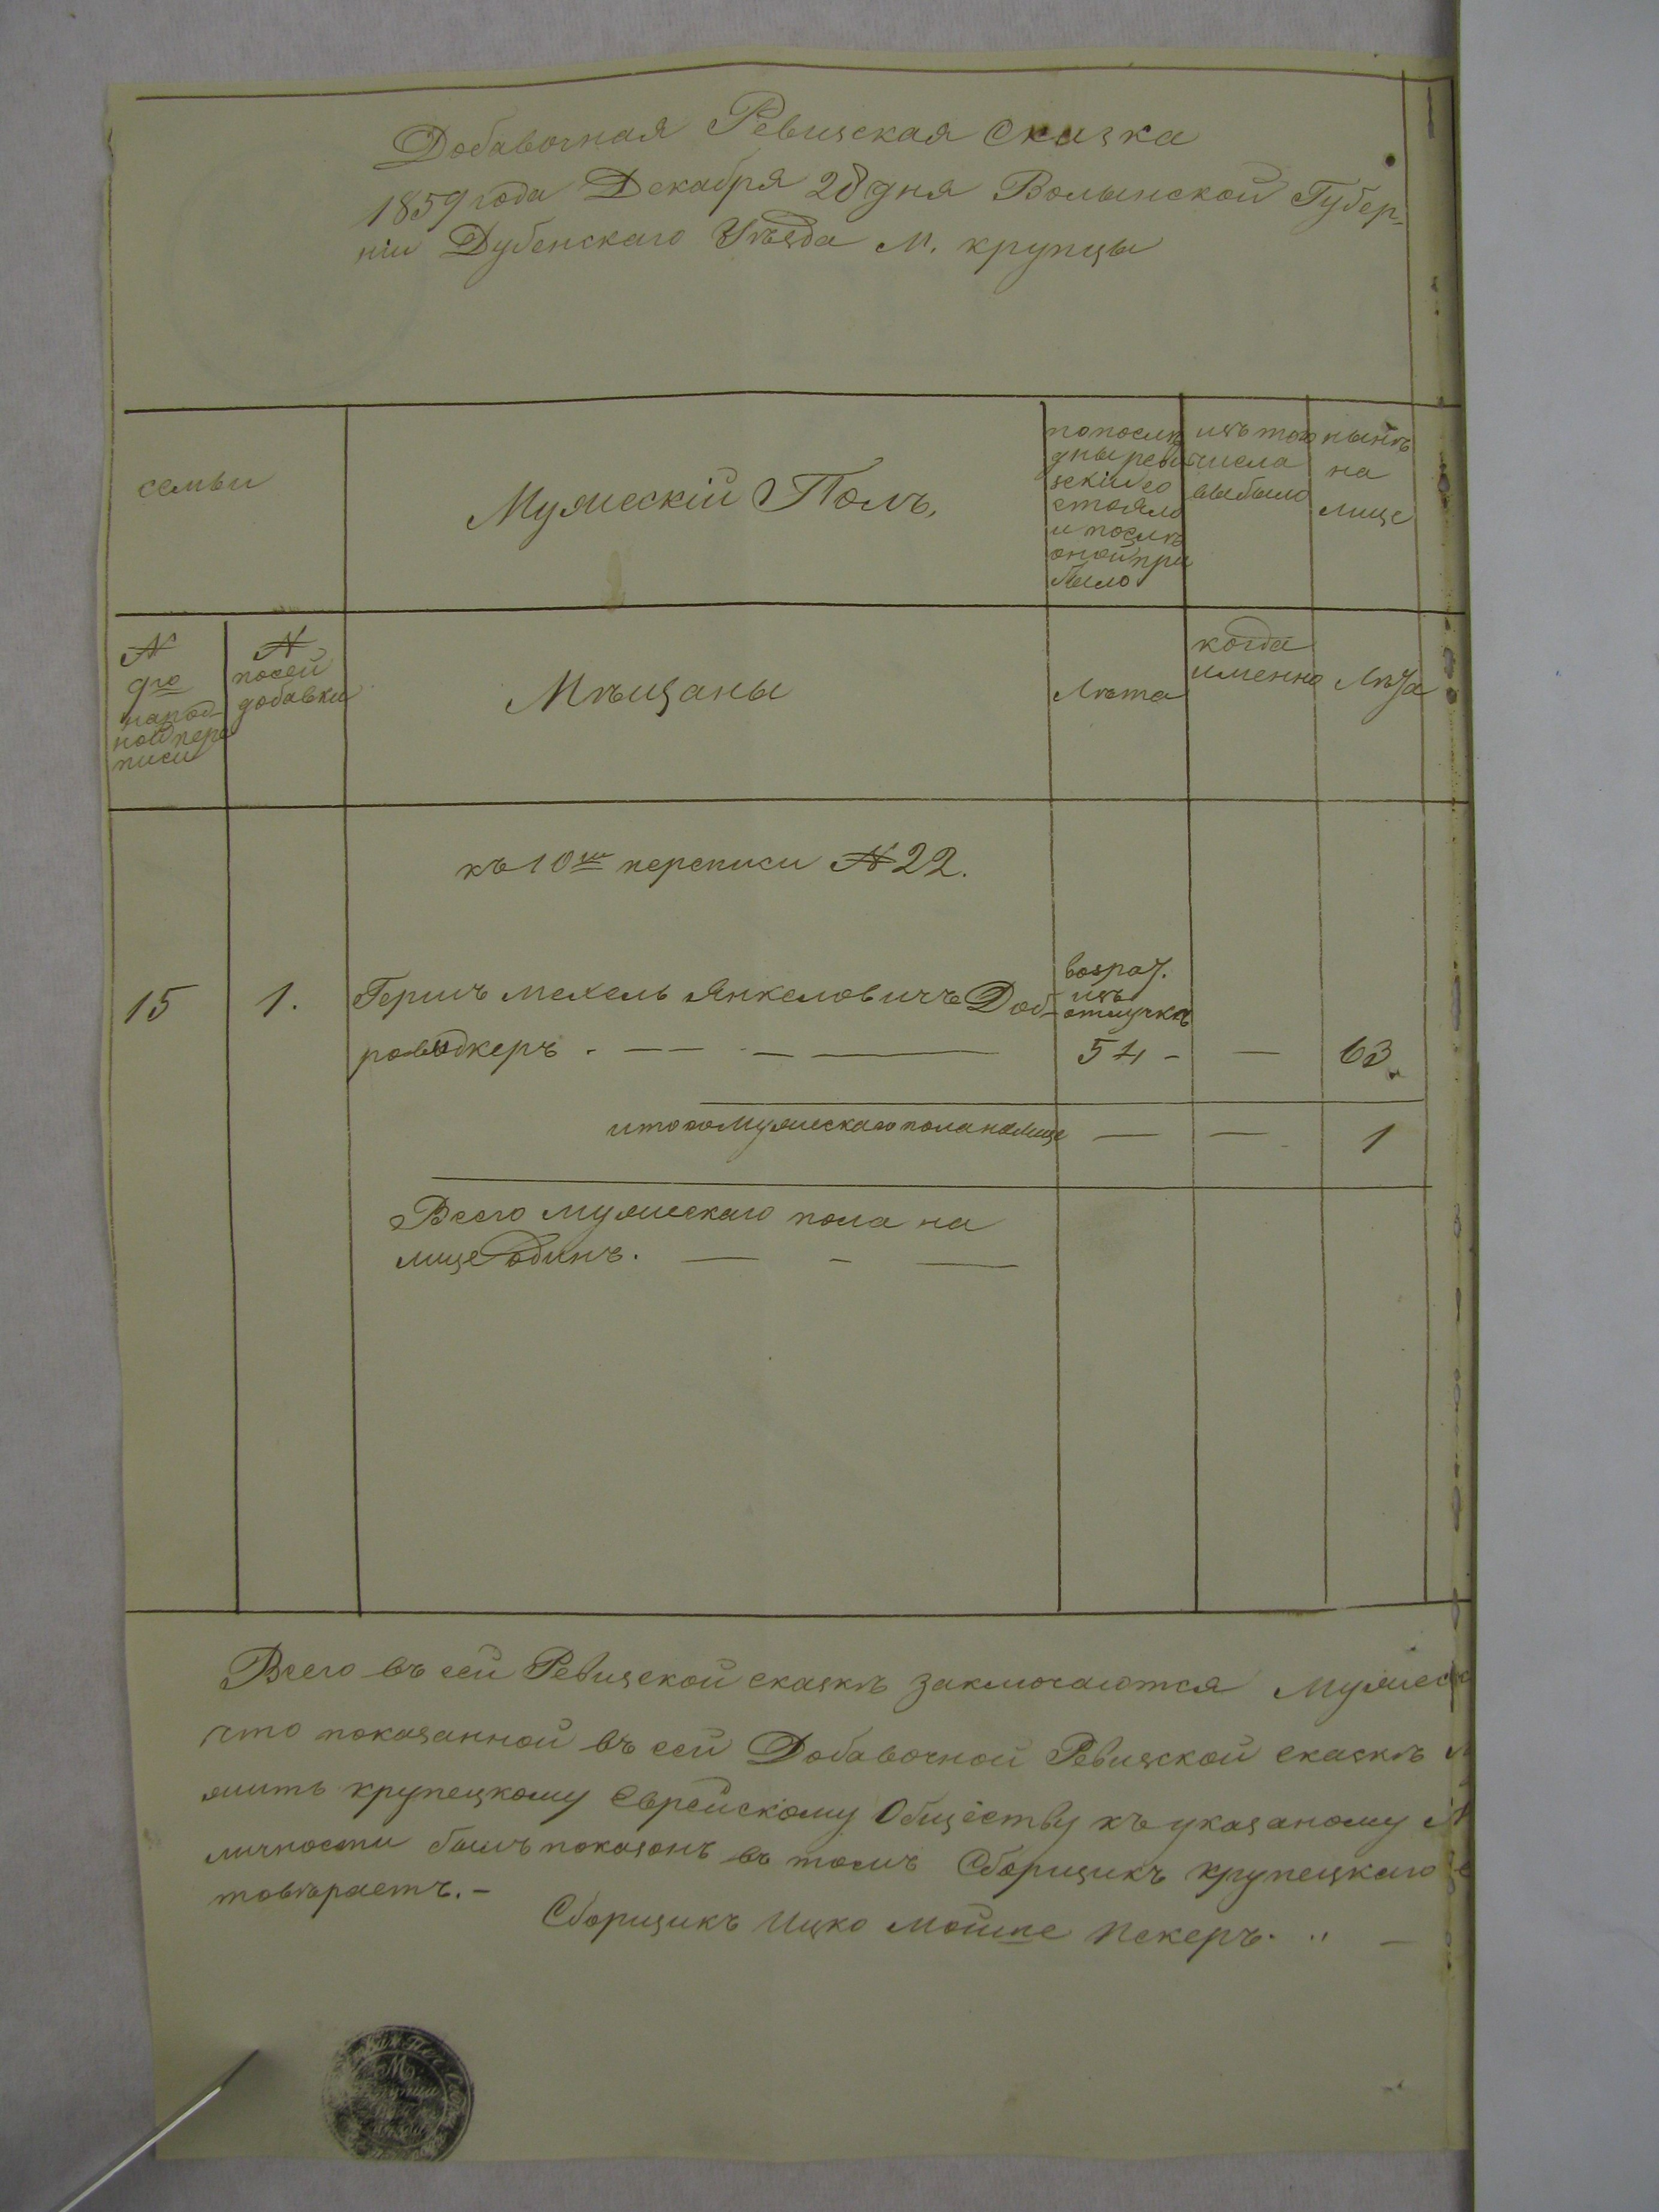 Добавочная Ревизская Сказка
1859 года Декабря 28 дня Волынской Губер-
ніи Дубенскаго Уѣзда м. крупцы
семьи
Мужескій Полъ.
по послѣ
дны реви
зскіи со
стояло
и послѣ
оной при
было
изъ того
числа
выбыло
нынѣ
на
лице
№
9го
народ-
ной пере
писи
№
по сей
добавки
Мѣщаны
Лѣта
когда
именно
Лѣта
къ 10ой переписи № 22.
15
1.
Гершъ мехель Янкеловичъ Доб-
роводкеръ . — — . — ———
возрат.
изъ
отлучкѣ
54 -
—
63.
итого Мужескаго пола налице — — 1
Всего мужескаго пола на
лице одинъ. — - —
Всего въ сей Ревизской сказкѣ заключаются Мужеск
что показанной въ сей Добавочной Ревизской сказкѣ
жить крупецкому Еврейскому Обществу къ указаному
личности былъ показонъ въ томъ Сборщикъ крупецкаго
товѣраетъ. -
Сборщикъ Ицко Мойше Пекеръ. „ —